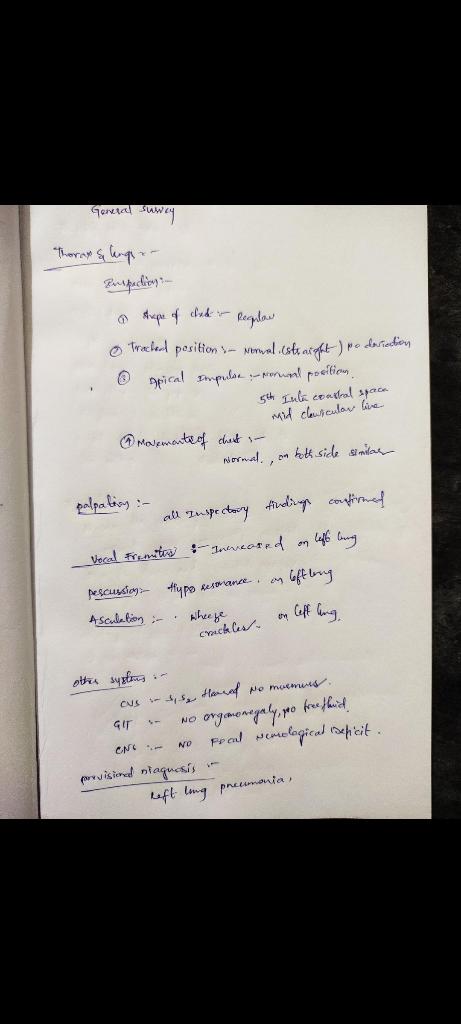 General survey
Thorax & lungs :-
Inspection :-
① shape of chest :- Regular
② Tracheal position :- Normal (straight) no deviation
③ Apical Impulse :- Normal position.
5th Inter coastal space
Mid clavicular line
④ Movements of chest :-
Normal, on both side similar
palpation :-
all Inspectory findings confirmed
Vocal Fremitus :- Increased on left lung
percussion :- Hypo resonance. on left lung
Asculation :- wheeze
crackles on left lung.
other systems :-
CVS :- S1, S2 Heared No murmurs.
GIT :- NO organomegaly, no free fluid.
CNS :- NO Focal Neurological Deficit.
provisional Diagnosis :-
Left lung pneumonia,